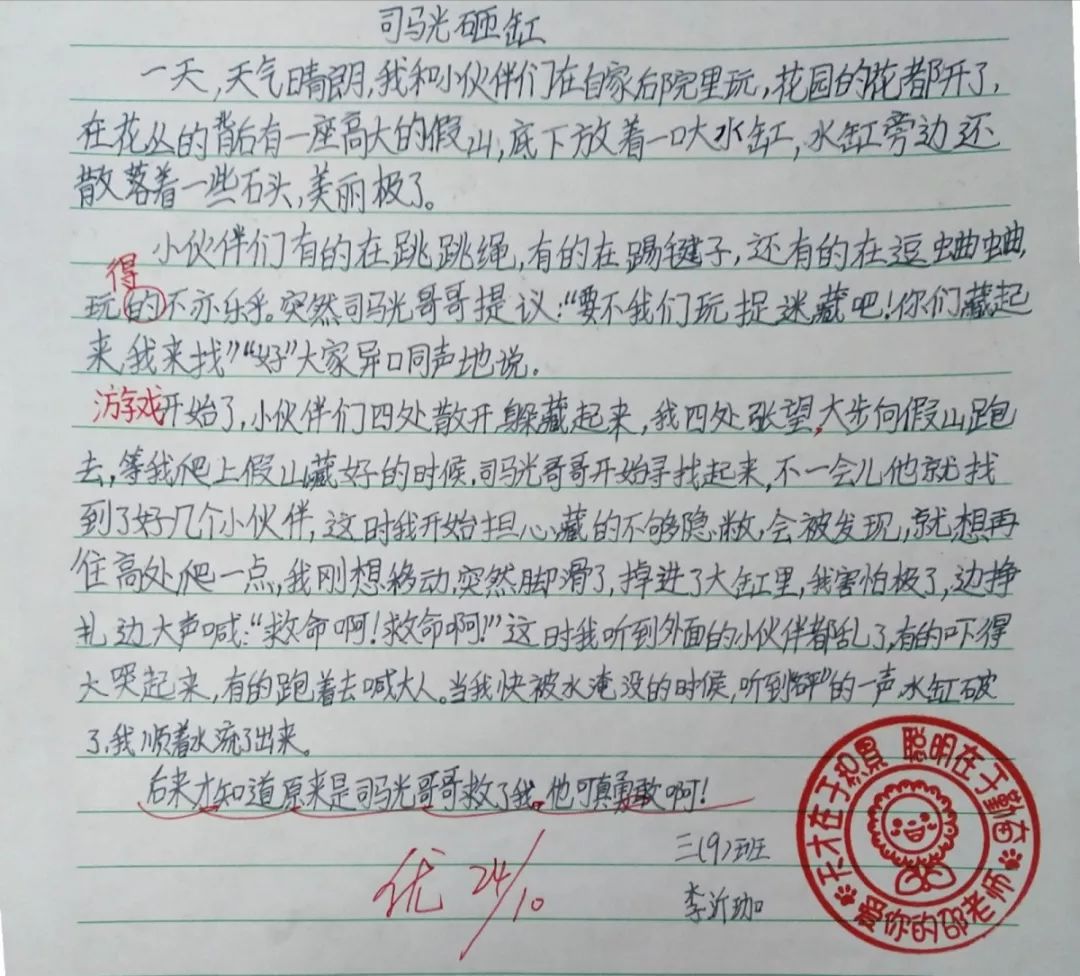 司马光砸缸
一天,天气晴朗,我和小伙伴们在自家后院里玩,花园的花都开了,
在花丛的背后有一座高大的假山,底下放着一口大水缸,水缸旁边还
散落着一些石头,美丽极了。
小伙伴们有的在跳跳绳,有的在踢毽子,还有的在逗蛐蛐,
得
玩的不亦乐乎。突然司马光哥哥提议:“要不我们玩捉迷藏吧!你们藏起
来,我来找”“好”大家异口同声地说。
游戏开始了,小伙伴们四处散开躲藏起来,我四处张望,大步向假山跑
去,等我爬上假山藏好的时候,司马光哥哥开始寻找起来,不一会儿他就找
到了好几个小伙伴,这时我开始担心藏的不够隐敝,会被发现,就想再
住高处爬一点,我刚想移动,突然脚滑了,掉进了大缸里,我害怕极了,边挣
扎边大声喊:“救命啊!救命啊!”这时我听到外面的小伙伴都乱了,有的吓得
大哭起来,有的跑着去喊大人。当我快被水淹没的时候,听到“砰”的一声水缸破
了,我顺着水流了出来。
后来才知道原来是司马光哥哥救了我。他可真勇敢啊!
三(9)班
优 24/10
李沂珈
天才在于积累 聪明在于勤奋
爱你的邵老师